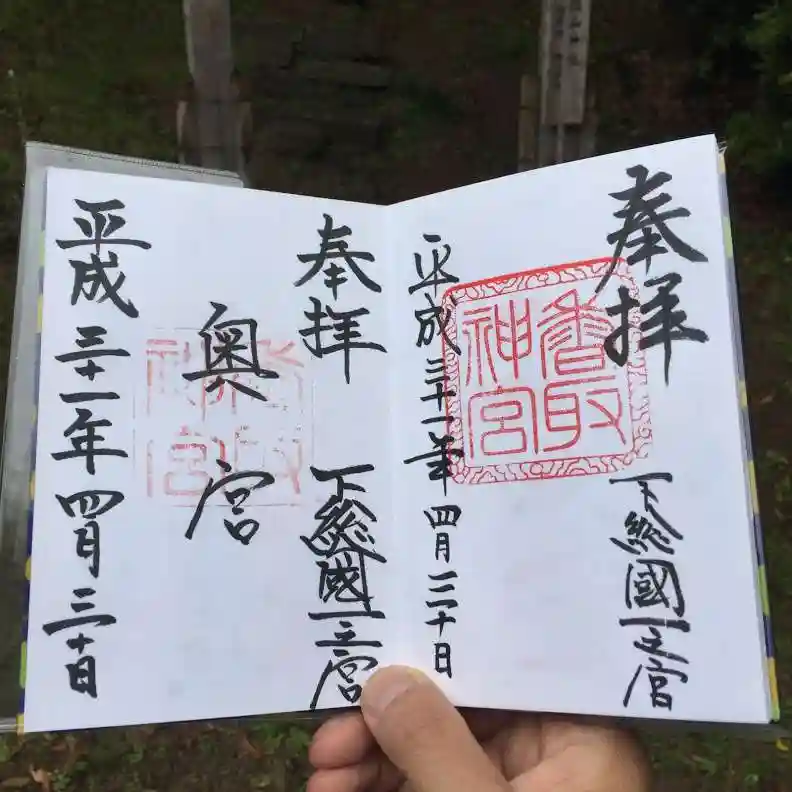 奉拝
下総國一之宮
香取
神宮
平成三十一年四月三十日
奉拝
下総國一之宮
奥宮
香取
神宮
平成三十一年四月三十日